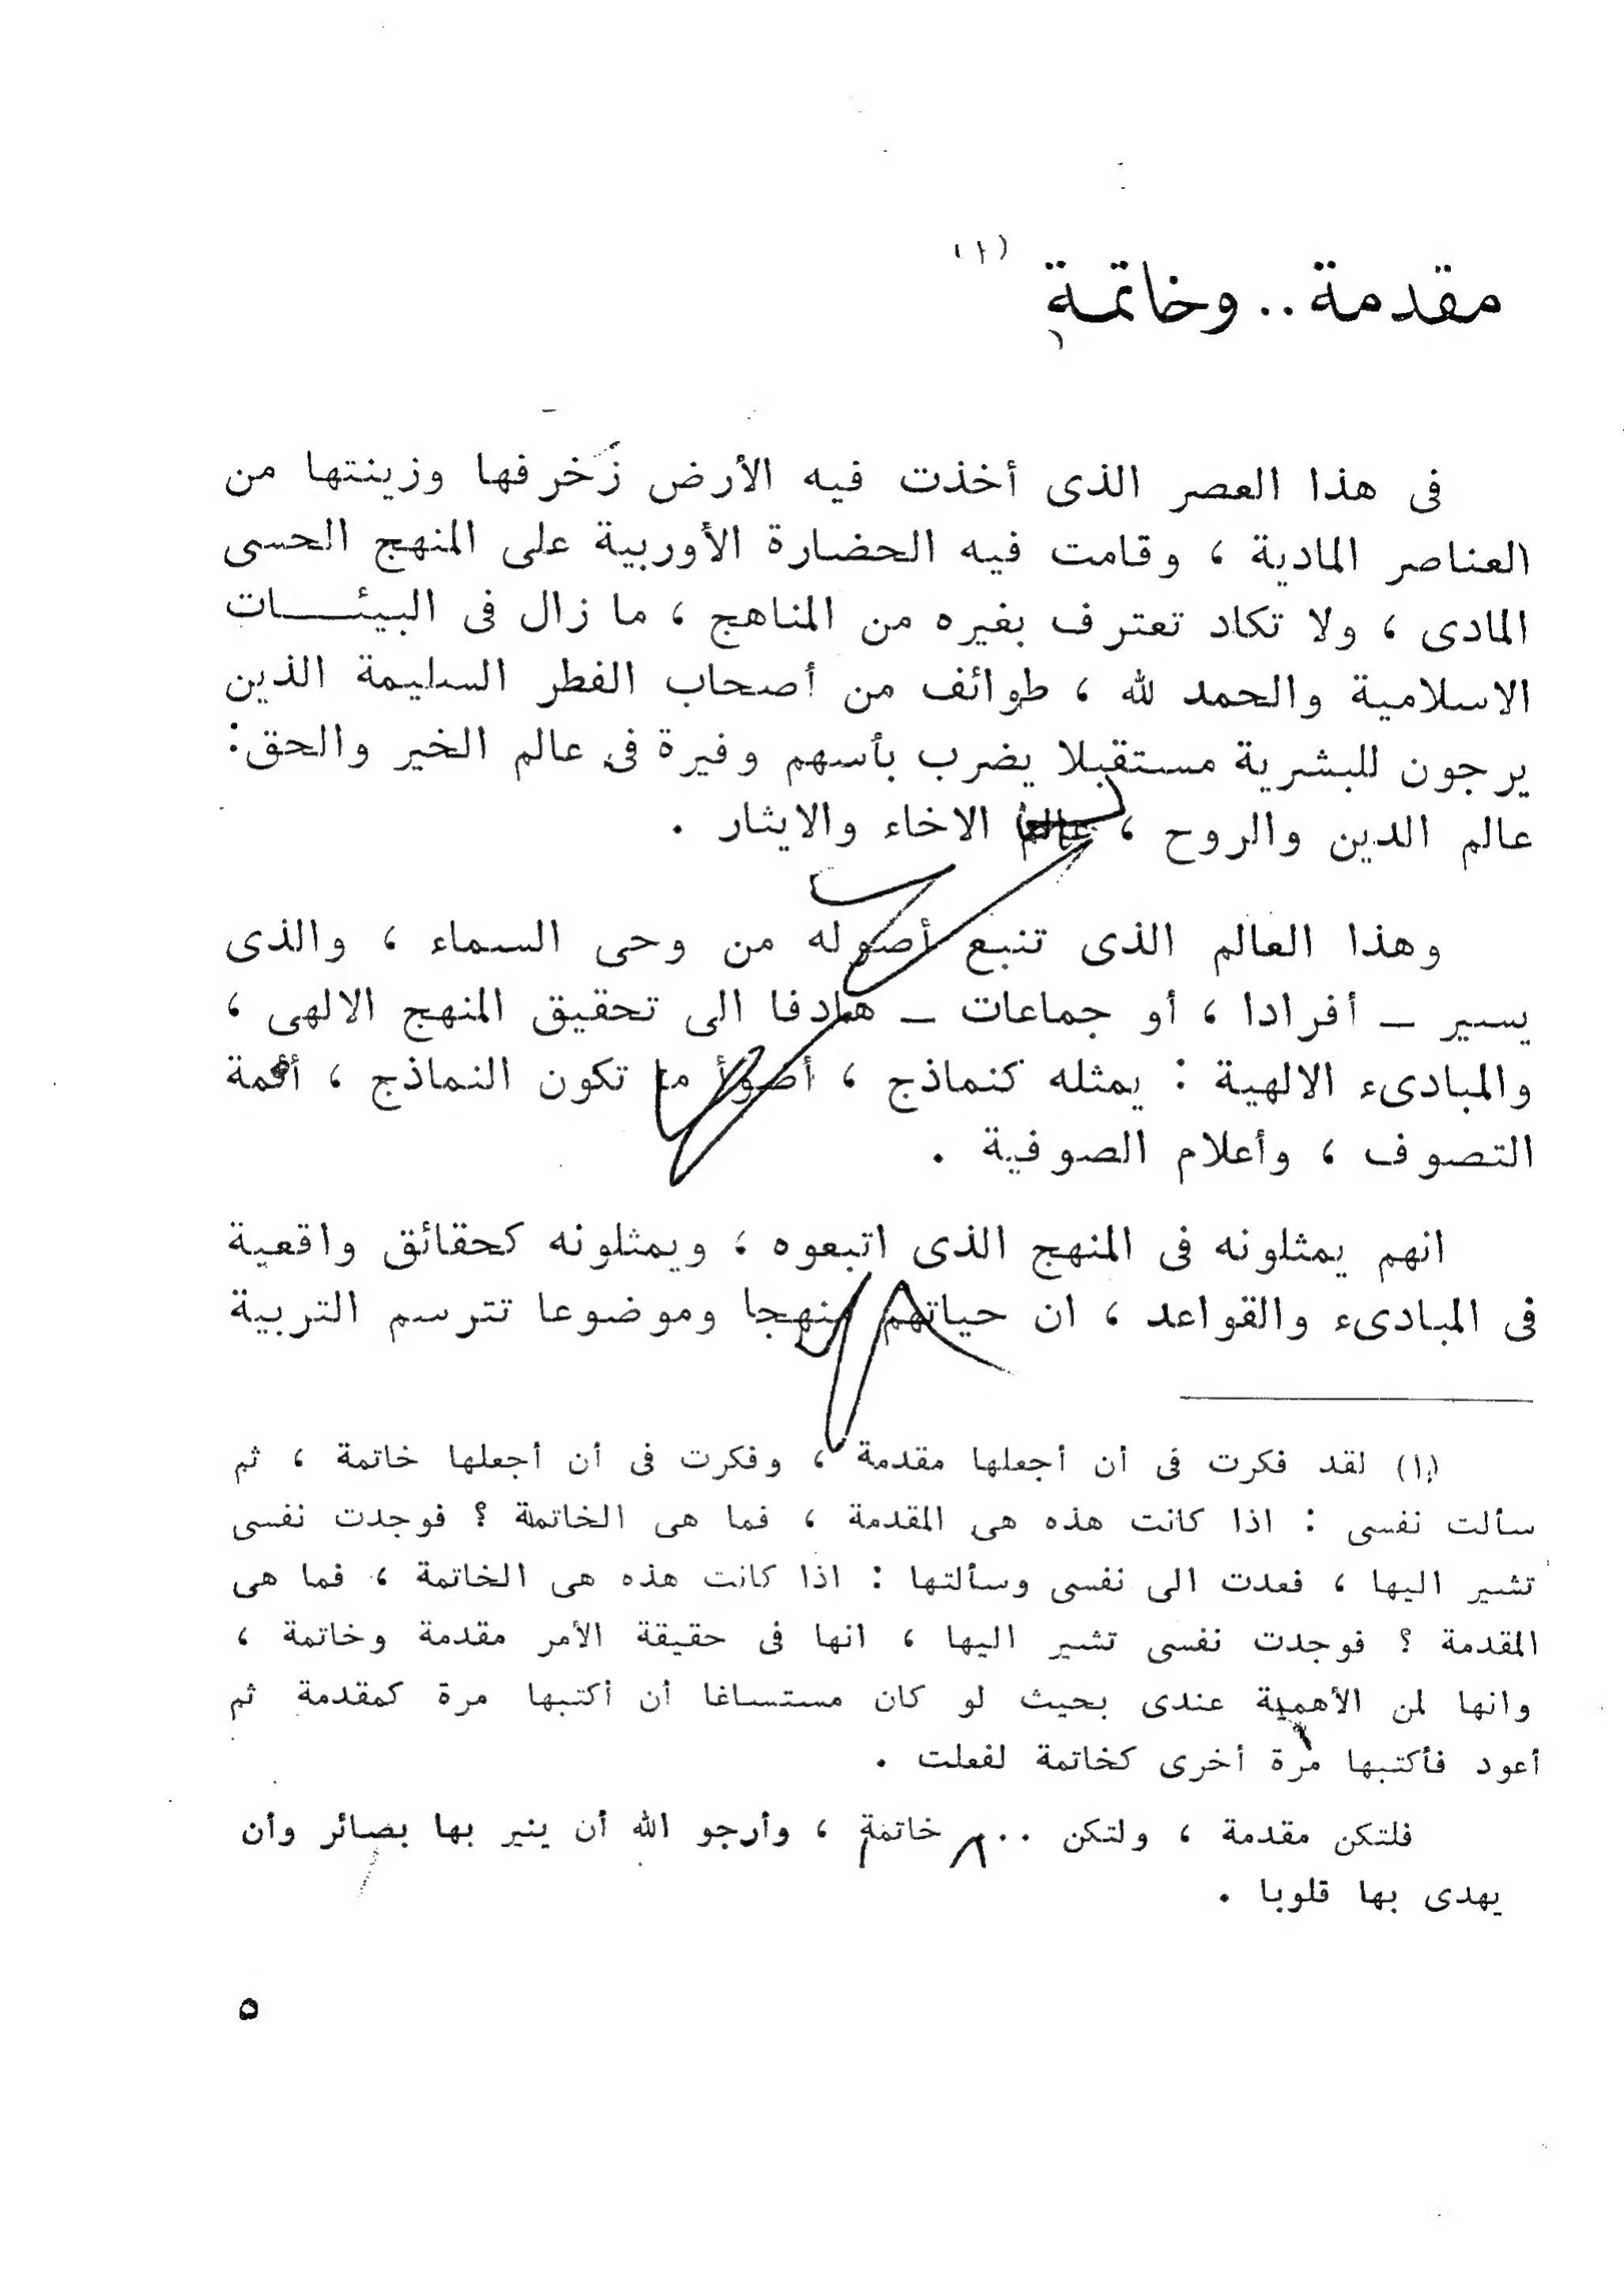 مقدمة .. وخاتمة (١)
فى هذا العصر الذى أخذت فيه الأرض زخرفها وزينتها من
العناصر المادية ، وقامت فيه الحضارة الأوربية على المنهج الحسى
المادى ، ولا تكاد تعترف بغيره من المناهج ، ما زال فى البيئـــات
الاسلامية والحمد لله ، طوائف من أصحاب الفطر السليمة الذين
يرجون للبشرية مستقبلا يضرب بأسهم وفيرة فى عالم الخير والحق:
عالم الدين والروح ، عالم الاخاء والايثار .
وهذا العالم الذى تنبع أصوله من وحى السماء ، والذى
يسير ــ أفرادا ، أو جماعات ــ هادفا الى تحقيق المنهج الالهى ،
والمبادىء الالهية : يمثله كنماذج ، أضوأ ما تكون النماذج ، أئمة
التصوف ، وأعلام الصوفية .
انهم يمثلونه فى المنهج الذى اتبعوه ، ويمثلونه كحقائق واقعية
فى المبادىء والقواعد ، ان حياتهم منهجا وموضوعا تترسم التربية
(١) لقد فكرت فى أن أجعلها مقدمة ، وفكرت فى أن أجعلها خاتمة ، ثم
سألت نفسى : اذا كانت هذه هى المقدمة ، فما هى الخاتمة ؟ فوجدت نفسى
تشير اليها ، فعدت الى نفسى وسألتها : اذا كانت هذه هى الخاتمة ، فما هى
المقدمة ؟ فوجدت نفسى تشير اليها ، انها فى حقيقة الأمر مقدمة وخاتمة ،
وانها لمن الأهمية عندى بحيث لو كان مستساغا أن أكتبها مرة كمقدمة ثم
أعود فأكتبها مرة أخرى كخاتمة لفعلت .
فلتكن مقدمة ، ولتكن ... خاتمة ، وأرجو الله أن ينير بها بصائر وأن
يهدى بها قلوبا .
٥